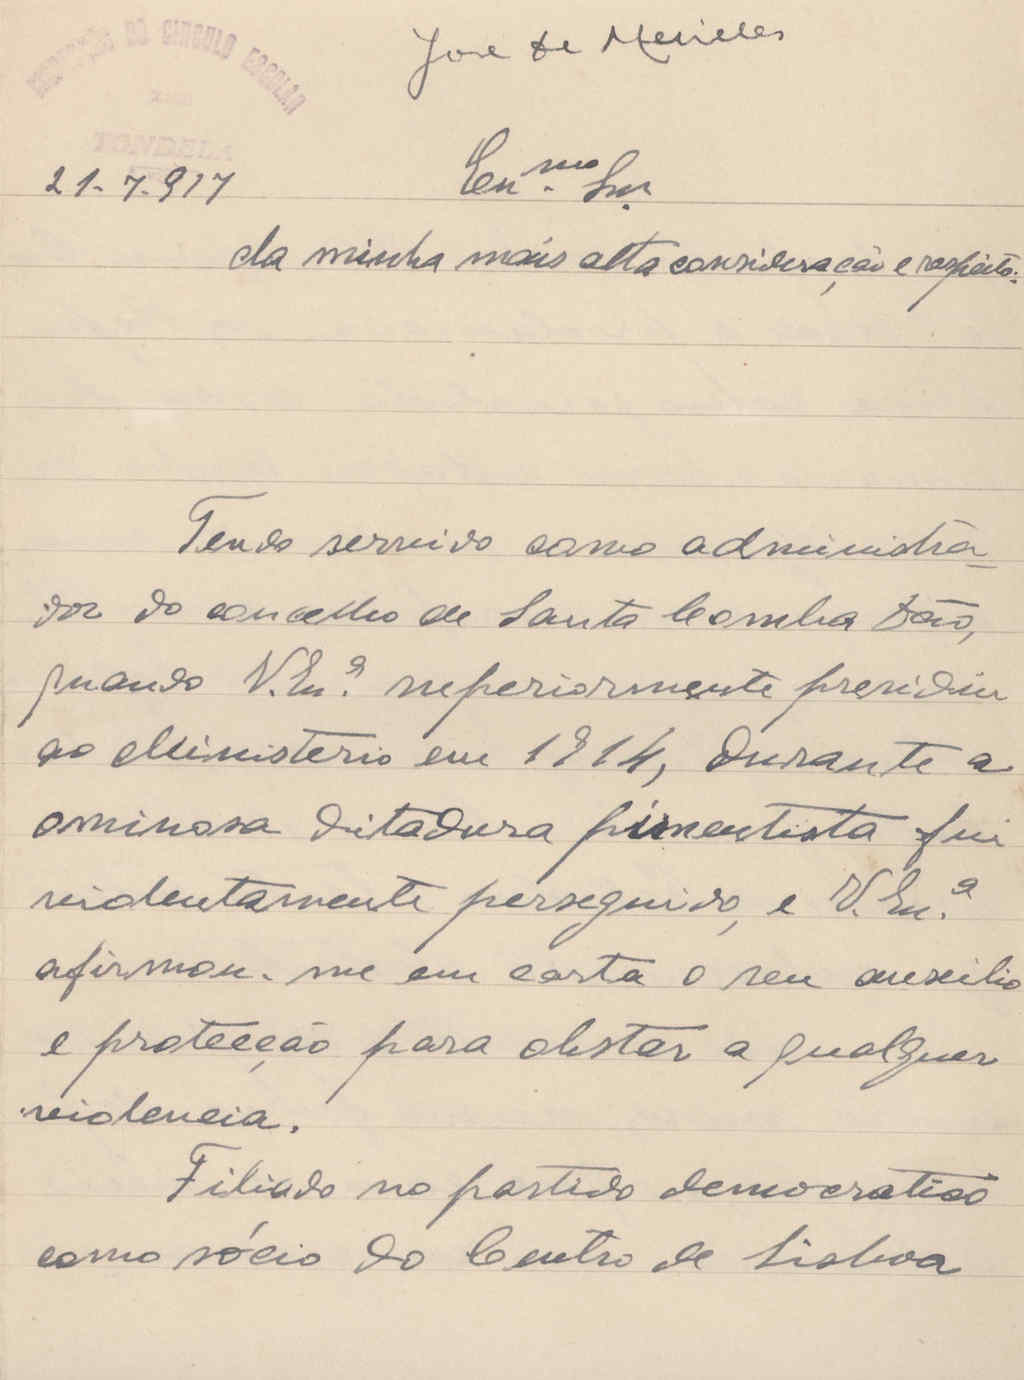 José de Meirelles
INSPECÇÃO DO CIRCULO ESCOLAR
TONDELA
21-7-917
Ex.mo Snr.
da minha mais alta consideração e respeito:
Tendo servido como administra-
dor do concelho de Santa Comba Dão,
quando V. Ex.ª superiormente presidiu
ao Ministerio em 1914, durante a
ominosa ditadura pimentista fui
violentamente perseguido, e V. Ex.ª
afirmou-me em carta o seu auxilio
e protecção para obstar a qualquer
violencia.
Filiado no partido democratico
como sócio do Centro de Lisboa